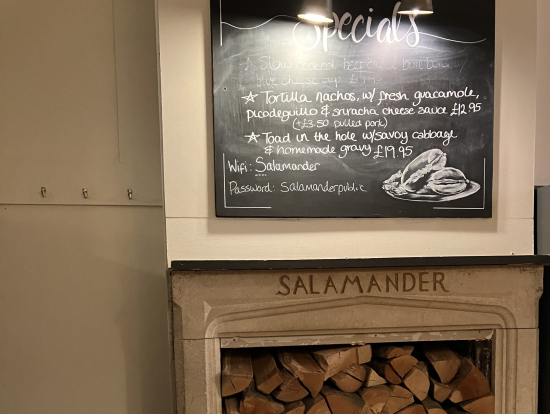 Specials
☆ Tortilla nachos, w/ fresh guacamole,
picodeguillo & sriracha cheese sauce £12.95
(+£3.50 pulled pork)
☆ Toad in the hole w/savoy cabbage
& homemade gravy £19.95
Wifi: Salamander
Password: Salamanderpublic
SALAMANDER